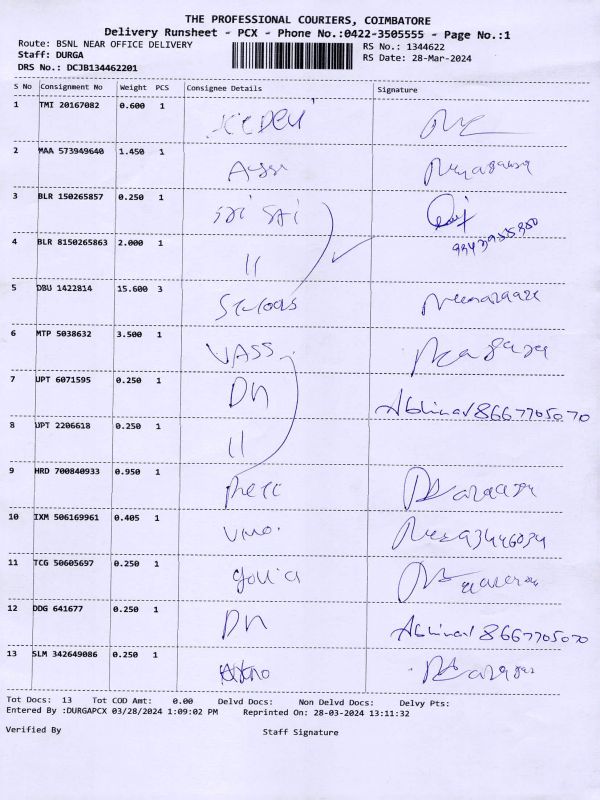 THE PROFESSIONAL COURIERS, COIMBATORE
Delivery Runsheet - PCX - Phone No.:0422-3505555 - Page No.:1
Route: BSNL NEAR OFFICE DELIVERY RS No.: 1344622
Staff: DURGA RS Date: 28-Mar-2024
DRS No.: DCJB134462201
S No Consignment No Weight PCS Consignee Details Signature
1 TMI 20167082 0.600 1
2 MAA 573949640 1.450 1
3 BLR 150265857 0.250 1 Sri Sai
4 BLR 8150265863 2.000 1 11
5 DBU 1422814 15.600 3
6 MTP 5038632 3.500 1 VASS
7 UPT 6071595 0.250 1 Dn Abhinav 8667705070
8 UPT 2206618 0.250 1 11
9 HRD 700840933 0.950 1
10 IXM 506169961 0.405 1
11 TCG 50605697 0.250 1
12 DDG 641677 0.250 1 Dn Abhinav 8667705070
13 SLM 342649086 0.250 1
Tot Docs: 13 Tot COD Amt: 0.00 Delvd Docs: Non Delvd Docs: Delvy Pts:
Entered By :DURGAPCX 03/28/2024 1:09:02 PM Reprinted On: 28-03-2024 13:11:32
Verified By Staff Signature